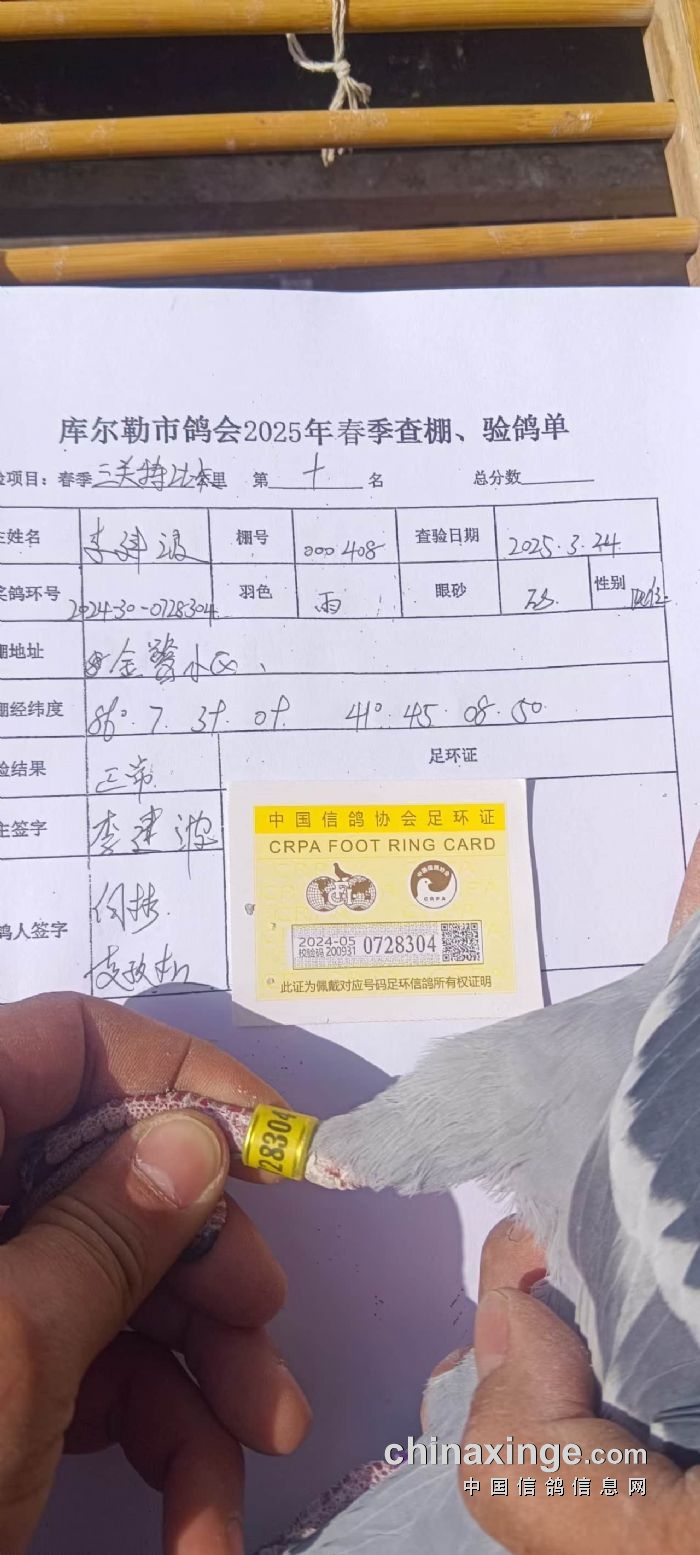 库尔勒市鸽会2025年春季查棚、验鸽单
验项目：春季三关特比公里 第 十 名 总分数
主姓名 李建波 棚号 000408 查验日期 2025.3.24
奖鸽环号 2024-30-0728304 羽色 雨 眼砂 砂 性别 雄
棚地址 小区
棚经纬度 86°.7. 41°.45.08.50
验结果 正常 足环证
主签字 李建波
鸽人签字
中国信鸽协会足环证
CRPA FOOT RING CARD
中国信鸽协会
CRPA
2024-05
校验码 200931
0728304
此证为佩戴对应号码足环信鸽所有权证明
28304
chinaxinge.com
中国信鸽信息网